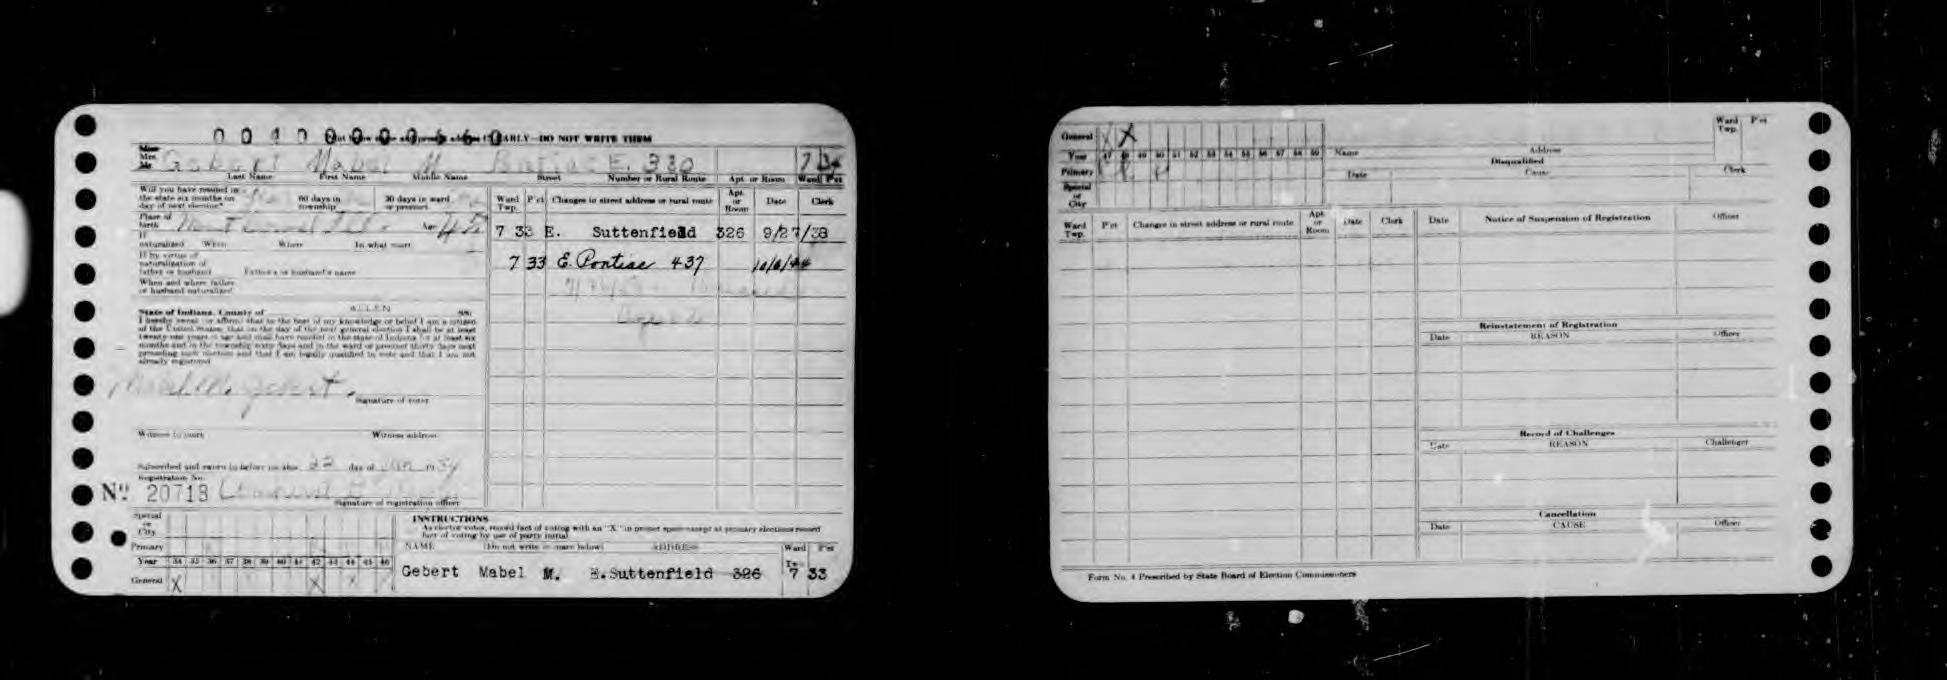 0 0 4 0 0 0 0 0 6 6 0 ARLY—DO NOT WRITE THEM
Miss
Mrs.
Mr. Gebert Mabel M. E. 330 7 34
Last Name First Name Middle Name Street Number or Rural Route Apt. or Room Ward P'ct
Will you have resided in
the state six months on 60 days in 30 days in ward
day of next election? township or precinct
Place of
birth Age 45
If
naturalized When Where In what court
If by virtue of
naturalization of
father or husband Father's or husband's name
When and where father
or husband naturalized
State of Indiana, County of ALLEN SS:
I hereby swear (or affirm) that to the best of my knowledge or belief I am a citizen
of the United States, that on the day of the next general election I shall be at least
twenty-one years of age and shall have resided in the state of Indiana for at least six
months and in the township sixty days and in the ward or precinct thirty days next
preceding such election and that I am legally qualified to vote and that I am not
already registered
Mabel M. Gebert.
Signature of voter
Witness to mark Witness address
Subscribed and sworn to before me this 22 day of Jan 1934
Registration No.
No. 20713
Signature of registration officer
Ward Twp. P'ct Changes in street address or rural route Apt. or Room Date Clerk
7 33 E. Suttenfield 326 9/27/38
7 33 E. Pontiac 437 10/6/44
Special
or
City
Primary
Year 34 35 36 37 38 39 40 41 42 43 44 45 46
General X X
INSTRUCTIONS
As elector votes, record fact of voting with an "X" in proper space except at primary elections record
fact of voting by use of party initial
NAME (Do not write or mark below) ADDRESS Ward P'ct
Gebert Mabel M. E. Suttenfield 326 7 33
General X X
Year 47 48 49 50 51 52 53 54 55 56 57 58 59
Primary
Special
or
City
Name Address Ward Twp. P'ct
Disqualified
Date Cause Clerk
Ward Twp. P'ct Changes in street address or rural route Apt. or Room Date Clerk
Date Notice of Suspension of Registration Officer
Reinstatement of Registration
Date REASON Officer
Record of Challenges
Date REASON Challenger
Cancellation
Date CAUSE Officer
Form No. 4 Prescribed by State Board of Election Commissioners